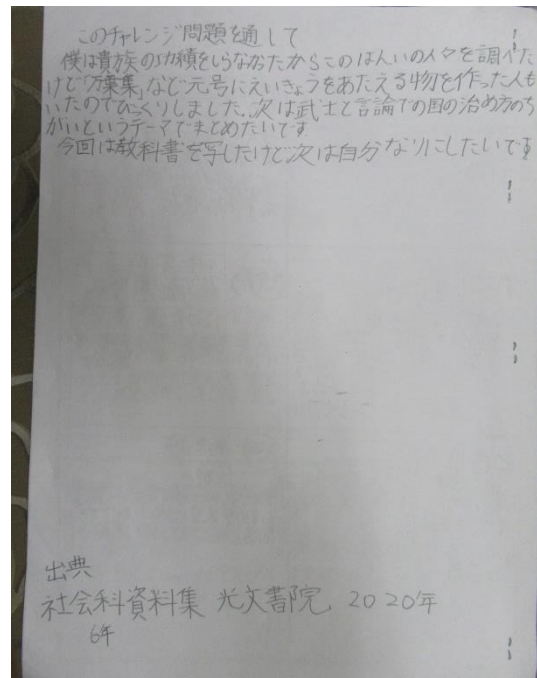 このチャレンジ問題を通して
僕は貴族の功績をしらなかったからこのはんいの人々を調べた
けど「万葉集」など元号にえいきょうをあたえる物を作った人も
いたのでびっくりしました。次は武士と言論での国の治め方のち
がいというテーマでまとめたいです
今回は教科書を写したけど次は自分なりにしたいです
出典
社会科資料集 光文書院 2020年
6年